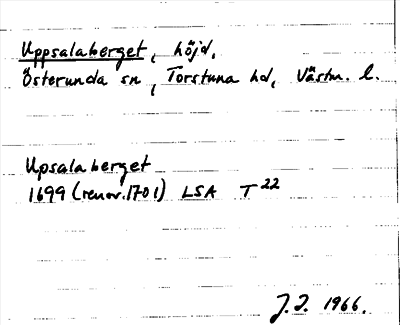 Uppsalaberget, höjd,
Österunda sn, Torstuna hd, Västm. l.
Upsala berget
1699 (renov. 1701) LSA T 22
J. J. 1966.